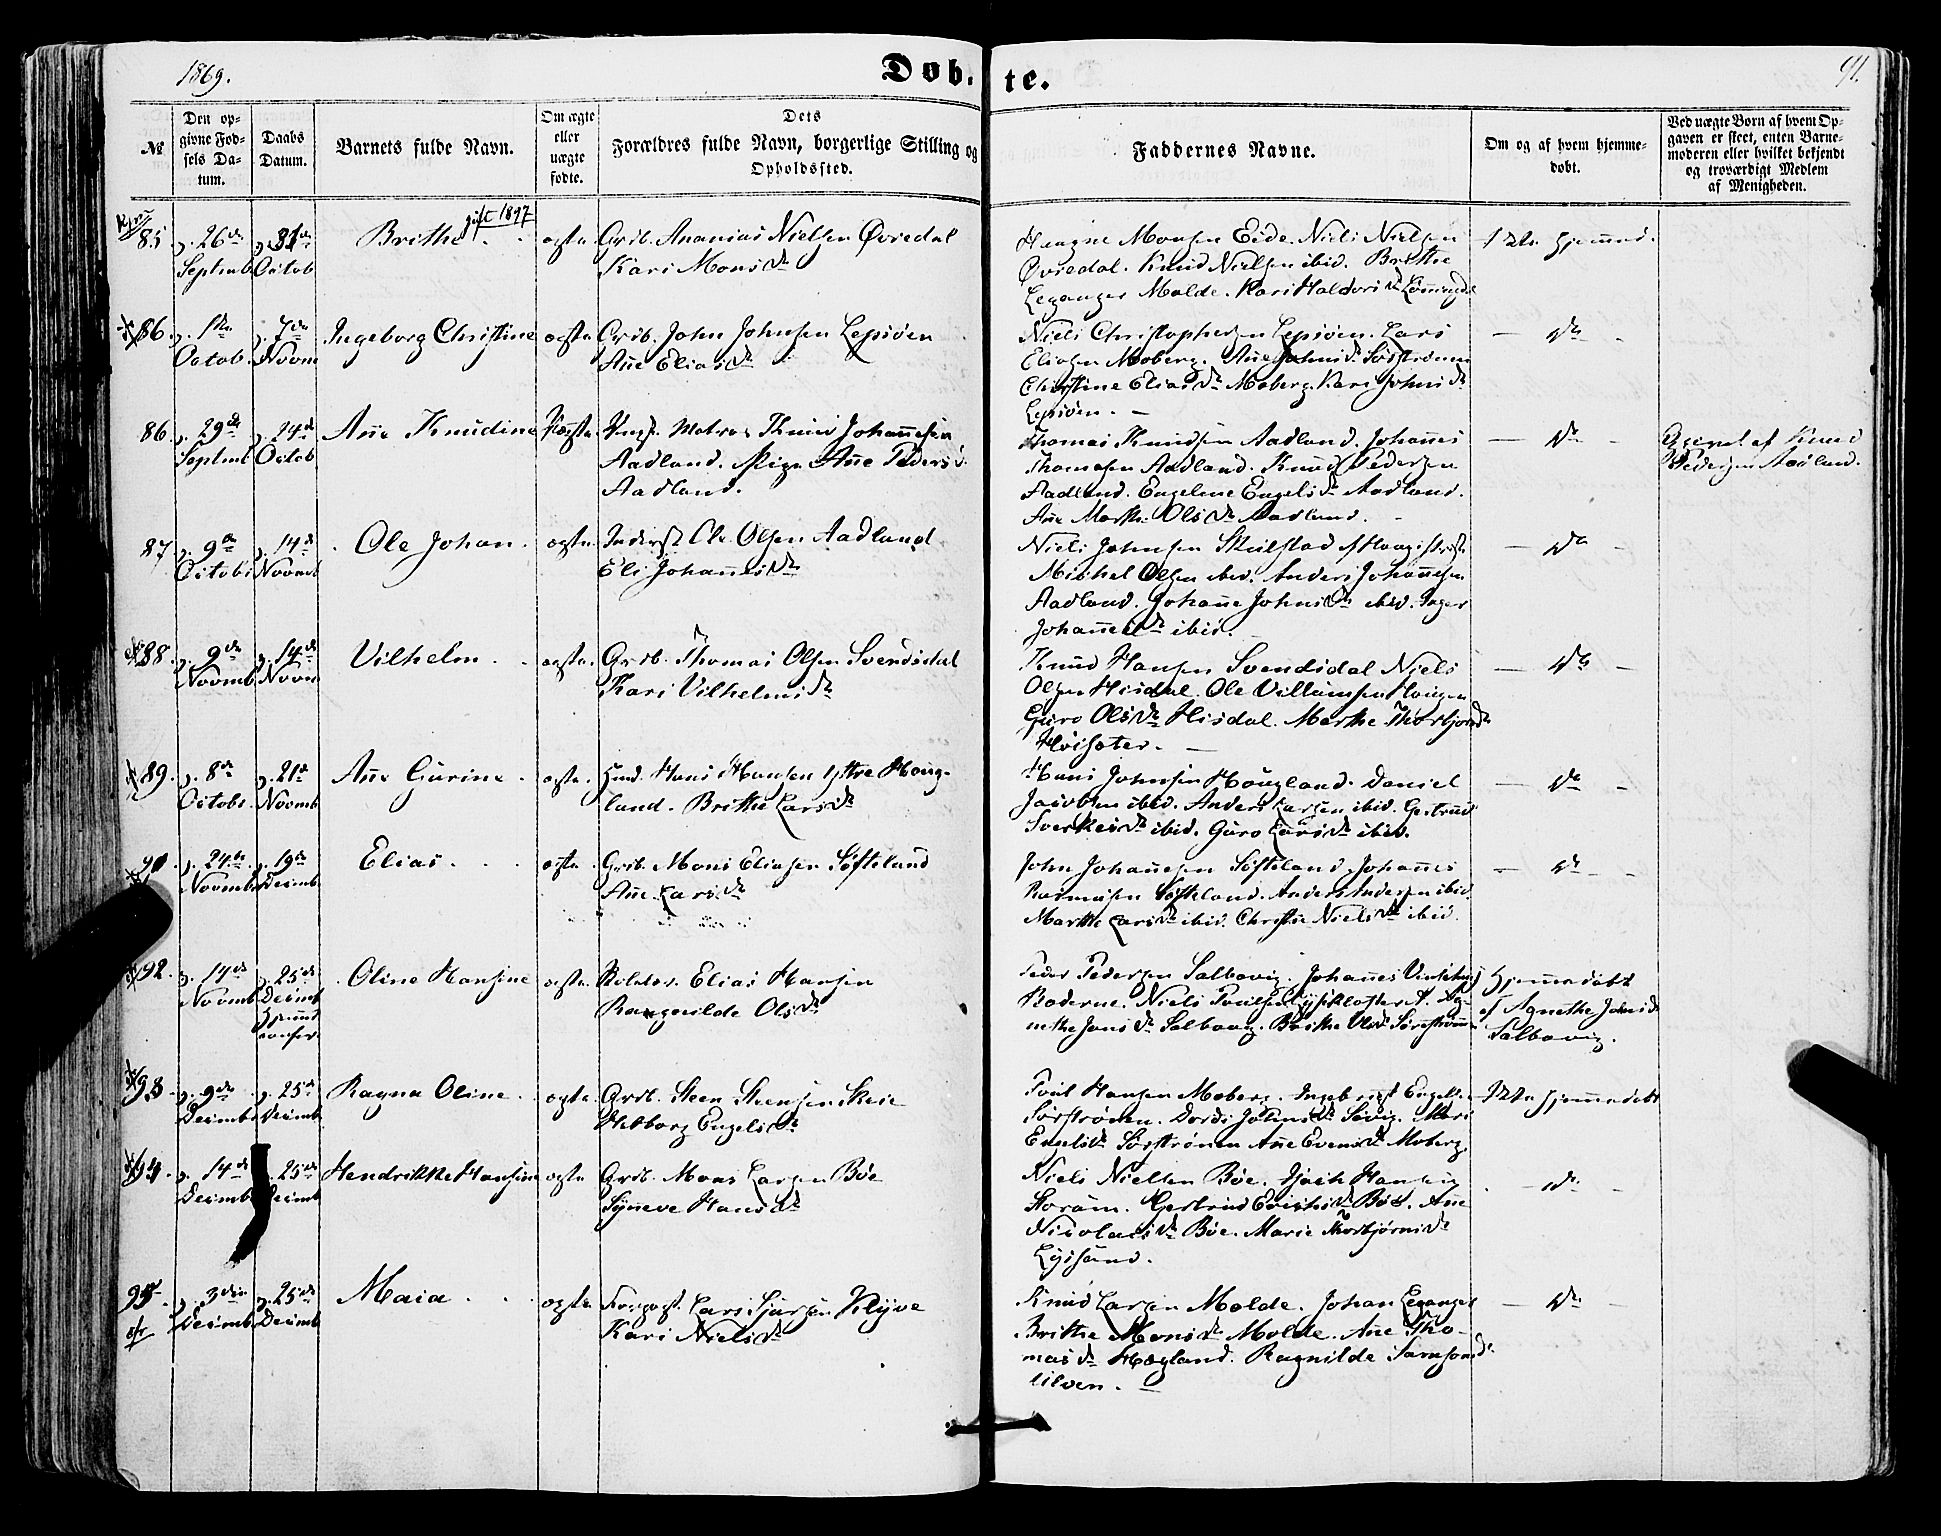 1869.
Døb.te.
91.
№
Den opgivne Fødsels Datum.
Daabs Datum.
Barnets fulde Navn.
Om ægte eller uægte fødte.
Dets Forældres fulde Navn, borgerlige Stilling og Opholdssted.
Faddernes Navne.
Om og af hvem hjemmedøbt.
Ved uægte Børn af hvem Opgaven er skeet, enten Barnemoderen eller hvilket bekjendt og troværdigt Medlem af Menigheden.
85. 26de Septemb 31de Octob Brithe gift 1897 ægte Grdb. Ananias Nielsen Øvredal
Kari Monsdr
Haagine Monsen Eide. Niels Nielsen
Øvredal. Knud Nielsen ibid. Brithe
Leganger Molde. Kari Haldorsdr
86. 1ste Octob. 7de Novm Ingeborg Christine ægte Grdb. John Johnsen Lepsøen
Ane Eliasdr
Niels Christophersen Lepsøen. Lars
Eliasen Moberg. Ane Johnsdr Sørstrønen
Christine Eliasdr Moberg. Kari Johnsdr
Lepsøen.
dto
86. 29de Septmb 24de Octob Ane Knudine Uægte Ungk. Matros Knud Johannesen
Aadland. Pige Ane Pedersd.
Aadland.
Thomas Knudsen Aadland. Johannes
Thomasen Aadland. Knud Pedersen
Aadland. Engeline Engelsdr Aadland.
Ane Marthe Olsdr Aadland.
dto
Opgivet af Knud
Pedersen Aadland.
87 9de Octob 14de Novmb Ole Johan. ægte Inderst Ole Olsen Aadland
Eli Johannesdr
Niels Johnsen Skeilstad
Michel Olsen ibid. Anders Johannesen
Aadland. Johanne Johnsdr ibid. Inger
Johannesdr ibid.
dto
88. 9de Novmb 14de Novm Vilhelm. ægte. Grdb. Thomas Olsen Svendsdal
Kari Vilhelmsdr
Knud Hansen Svendsdal Niels
Olsen Hisdal. Ole Villumsen Haugen
Guro Olsdr Hisdal. Marthe Thorbjørnsdr
Høisæter.
dto
89. 8de Octobr. 21de Novmb Ane Gurine ægte. Huusm. Hans Hansen Yttre Houg-
land. Brithe Larsdr
Hans Johnsen Hougland. Daniel
Jacobsen ibid. Anders Larsen ibid. Gertrud
Sverkesdr ibid. Guro Larsdr ibid.
dto
90. 24de Novmb 19de Decmb Elias. ægte Grdb. Mons Eliasen Søfteland
Ane Larsdr
John Johannesen Søfteland. Johannes
Rasmusen Søfteland. Anders Andersen ibid.
Marthe Larsdr ibid. Christie Nielsdr ibid.
dto
92. 14de Novmb 25de Decmb Oline Hansine ægte. Elias Hansen
Rangnilde Olsdr
Peder Pedersen Salbøvig. Johannes
Boderne. Niels Poulsen Lyseklosteret. Ag-
nethe Jonsdr Salbøvig. Brithe Olsdr Sørestrønen
Hjemmedøbt
af Agnethe Johnsdr
Salbøvig.
93. 9de Decmb 25de Decmb Ragna Oline ægte Grdb. Steen Steensen Skeie
Helborg Engelsdr
Poul Hansen Moberg. Ingebrigt Engels.
Sørstrønen. Dordi Johnsdr Søvig. Mari
Engelsdr Sørstrønen Ane Evensdr Moberg.
Ikke Hjemmedøbt
94. 14de Decmb 25de Decmb Hendrikke Hansine ægte Grdb. Mons Larsen Bøe
Synneve Hansdr
Niels Nielsen Bøe. Hansen
Storum. Gertrud Bøe. Ane
Nicolaisdr Bøe. Marie Thorbjørnsdr
Lysesund.
dto
95 3die Decmb 25de Decmb Maia ægte Lars Sjursen Klyve
Kari Nielsdr
Knud Larsen Molde. Johan Leganger
Brithe Monsdr Molde. Ane Tho-
masdr Hægland. Ragnilde Samsonsdr
Ulven.
dto